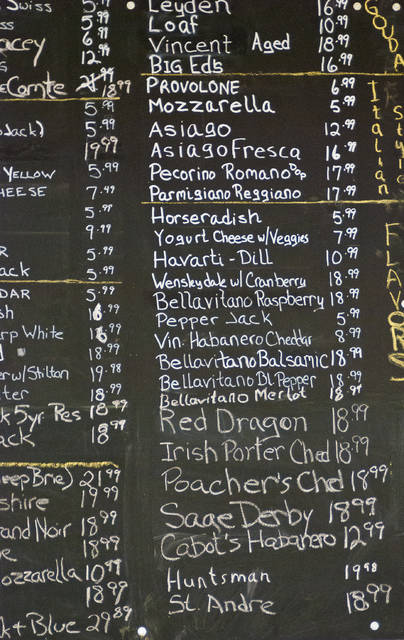 Swiss 5.99
ss 5.99
acey 6.99
12.99
Comte 18.99
5.99
oJack) 5.99
19.99
YELLOW 5.99
HEESE 7.49
5.99
9.99
R 5.99
ack 5.99
DAR 5.99
sh 16.99
rp White
18.99
er w/Stilton 19.98
ter 18.99
k 5yr Res 18.99
ack 18.99
eep Brie) 21.99
shire 19.99
and Noir 18.99
e 18.99
ozzarella 10.99
18.99
k + Blue 29.89
Leyden 16.99
Loaf 10.99
Vincent Aged 18.99
BIG Eds 16.99
GOUDA
PROVOLONE 6.99
Mozzarella 5.99
Asiago 12.99
Asiago Fresca 16.99
Pecorino Romano 17.99
Parmigiano Reggiano 17.99
Italian
Style
Horseradish 5.99
Yogurt Cheese w/Veggies 7.99
Havarti - Dill 10.99
Wensleydale w/Cranberry 18.99
Bellavitano Raspberry 18.99
Pepper Jack 5.99
Vin. Habanero Cheddar 8.99
Bellavitano Balsamic 18.99
Bellavitano Bl. Pepper 18.99
Bellavitano Merlot 18.99
Red Dragon 18.99
Irish Porter Ched 18.99
Poacher's Chd 18.99
Sage Derby 18.99
Cabot's Habanero 12.99
Huntsman 19.98
St. Andre 18.99
FLAVORS